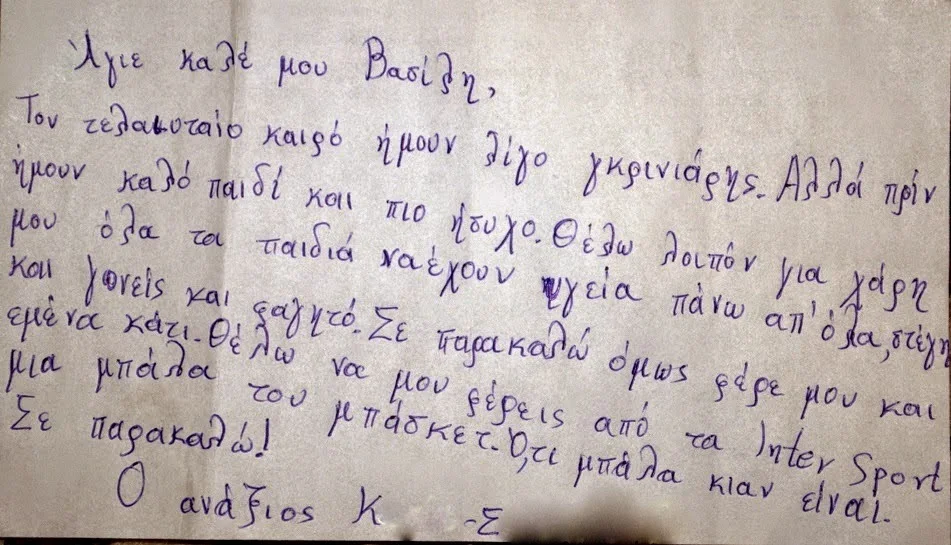 Άγιε καλέ μου Βασίλη,
Τον τελαυυταίο καιρό ήμουν λίγο γκρινιάρης. Αλλά πρίν
ήμουν καλό παιδί και πιο ήσυχο. Θέλω λοιπόν για χάρη
μου όλα τα παιδιά να έχουν υγεία πάνω απ' όλα, στέγη
και γονείς και φαγητό. Σε παρακαλώ όμως φέρε μου και
εμένα κάτι. Θέλω να μου φέρεις από τα Inter Sport
μια μπάλα του μπάσκετ. Ό,τι μπάλα κιαν είναι.
Σε παρακαλώ!
Ο ανάξιος Κ -Σ